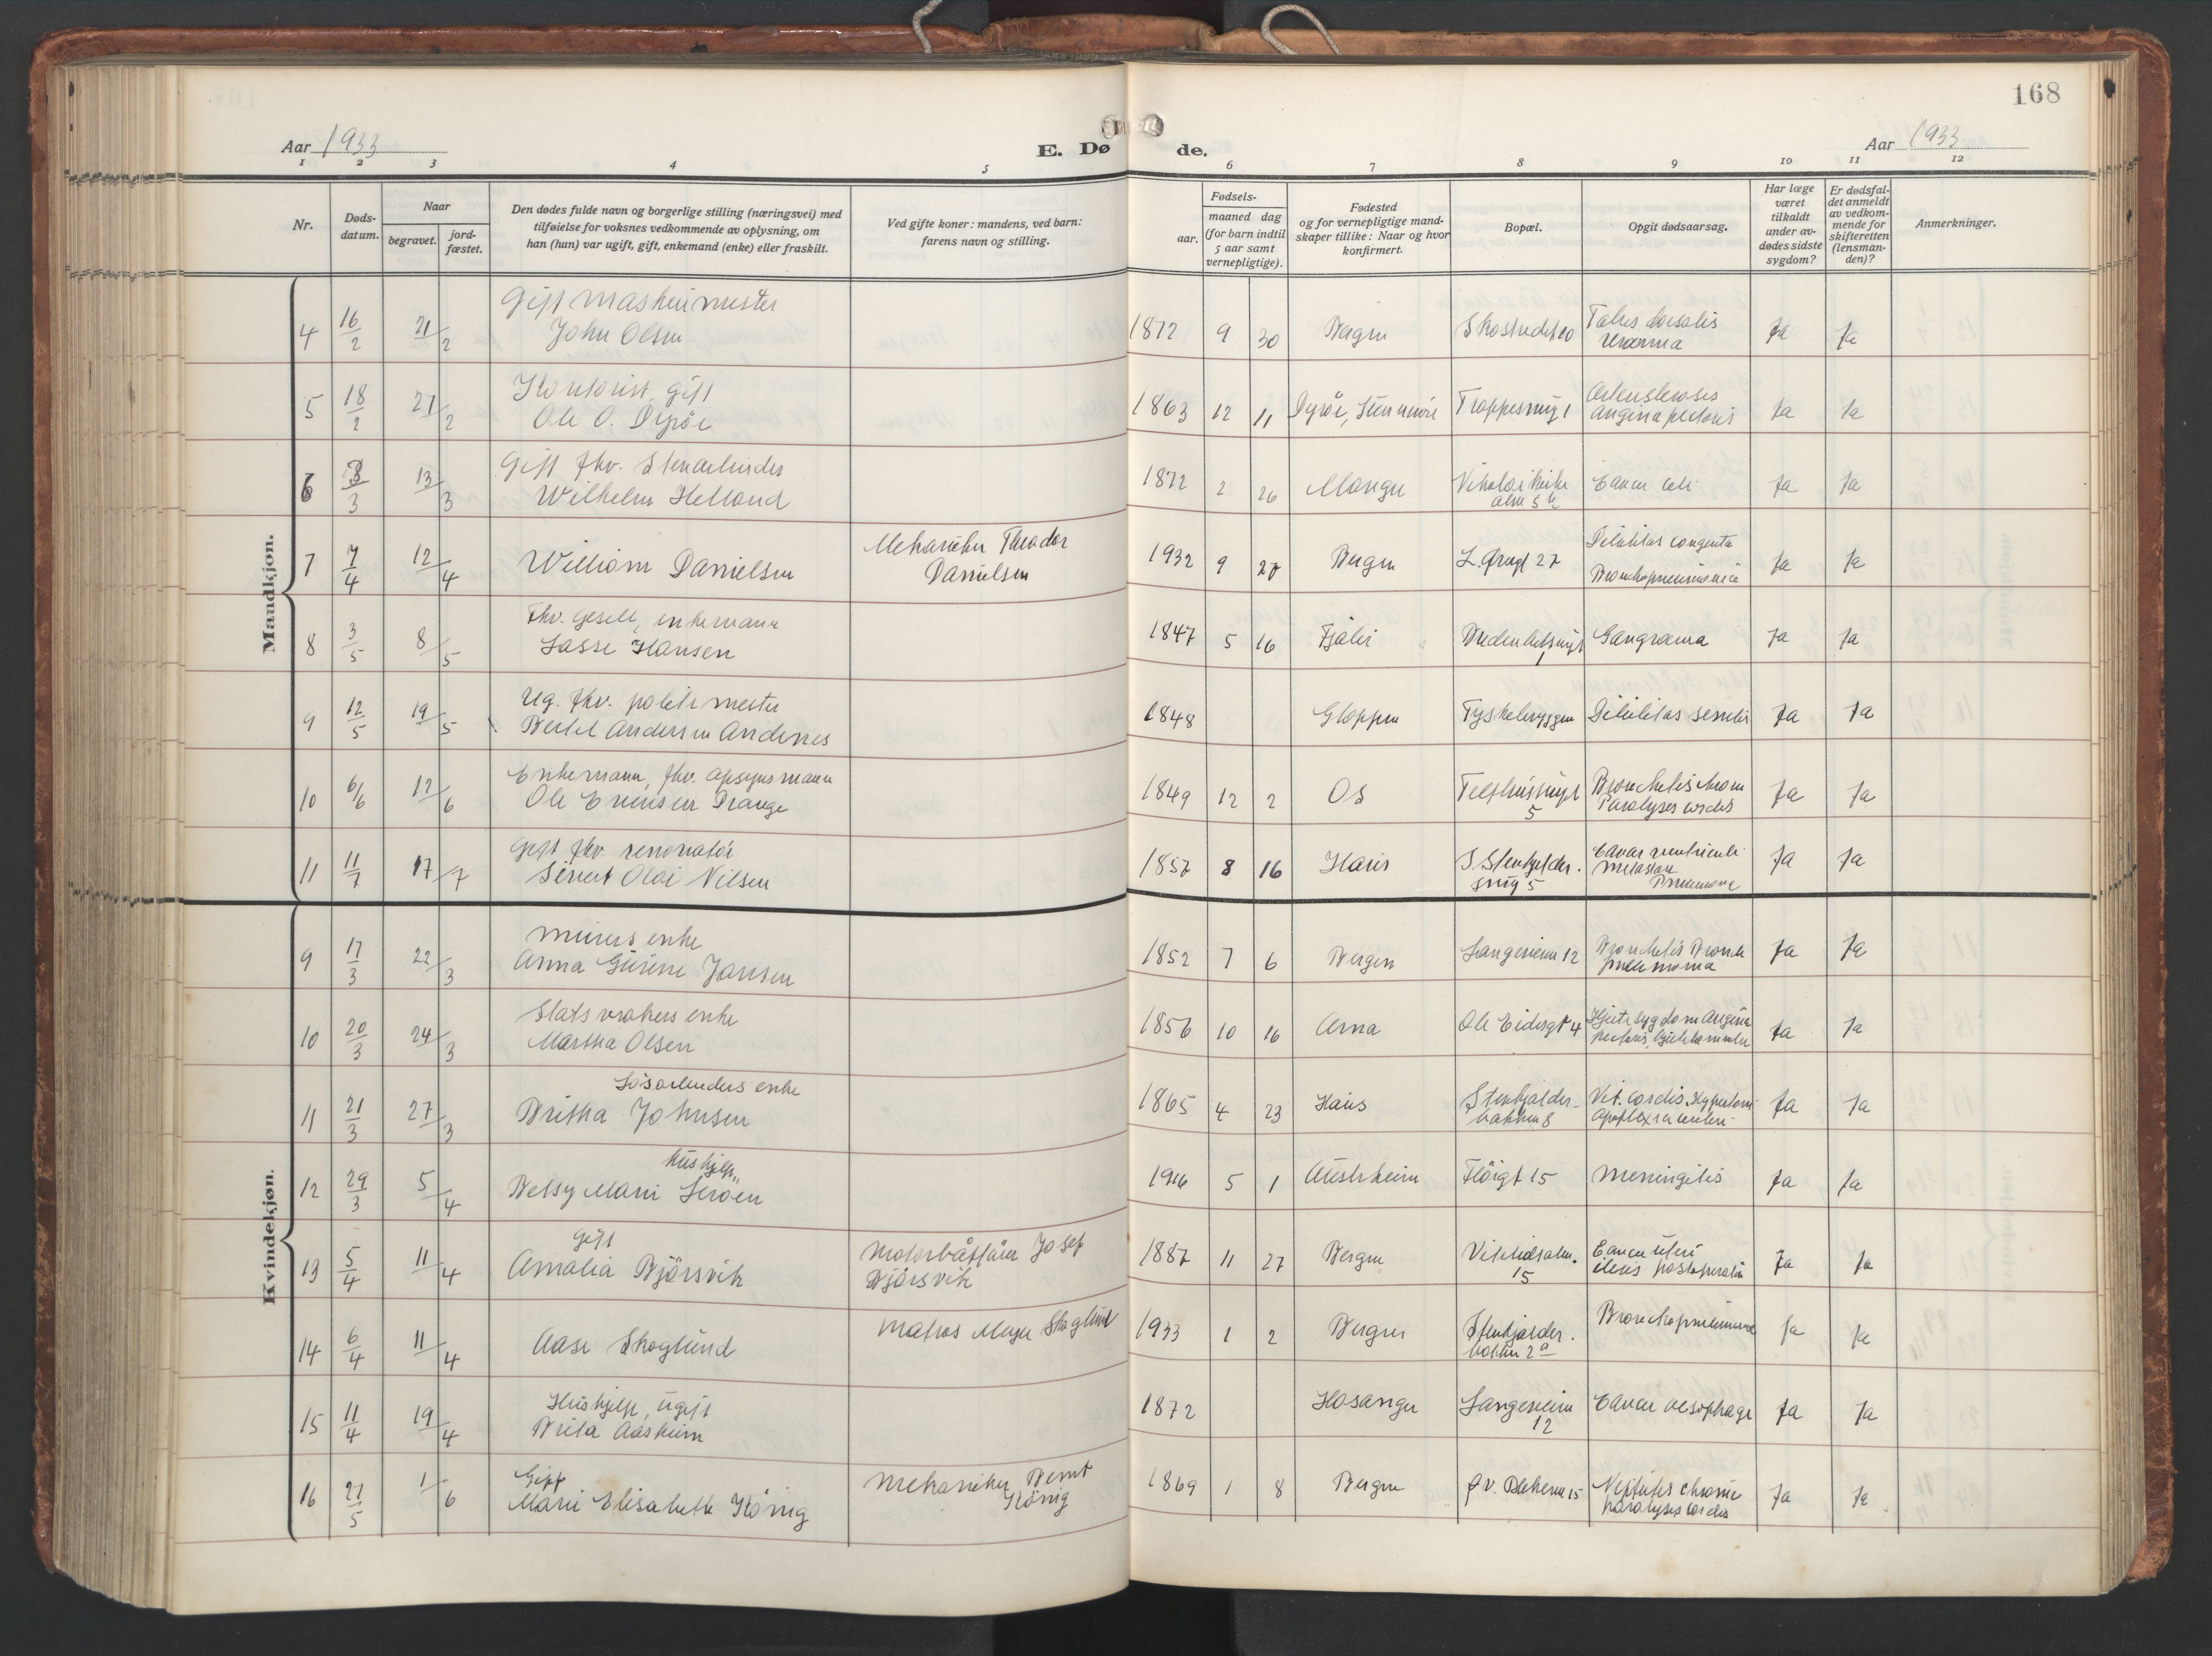 168
Aar 1933
E. Dø de.
Aar 1933
1 2 3 4 5 6 7 8 9 10 11 12
Nr.
Døds-
datum.
Naar
begravet.
jord-
fæstet.
Den dødes fulde navn og borgerlige stilling (næringsvei) med
tilføielse for voksnes vedkommende av oplysning, om
han (hun) var ugift, gift, enkemand (enke) eller fraskilt.
Ved gifte koner: mandens, ved barn:
farens navn og stilling.
Fødsels-
aar.
maaned dag
(for barn indtil
5 aar samt
vernepligtige).
Fødested
og for vernepligtige mand-
skaper tillike: Naar og hvor
konfirmert.
Bopæl.
Opgit dødsaarsag.
Har læge
været
tilkaldt
under av-
dødes sidste
sygdom?
Er dødsfal-
det anmeldt
av vedkom-
mende for
skifteretten
(lensman-
den)?
Anmerkninger.
Mandkjøn.
4 16/2 21/2 Gift Maskinmester
John Olsen
1872 9 30 Bergen
Tabes dorsalis
Uræmia
Ja Ja
5 18/2 27/2 Kontorist, gift
Ole O. Dyröe
1863 12 11 Dyröe,
Angina pectoris
Ja Ja
6 3/3 13/3 Gift fhv. Stenarbeider
Wilhelm Helland
1872 2 26 Manger
Nikolaikirke
alm 5 b
Cancer coli
Ja Ja
7 7/4 12/4 William Danielsen
Mekaniker Theodor
Danielsen
1932 9 27 Bergen
L. Øvregt 27
Debilitas congenita
Bronchopneumonia
Ja Ja
8 3/5 8/5 Fhv. gesell, enkemann
Lasse Hansen
1847 5 16 Fjaler
1
Gangræna
Ja Ja
9 12/5 19/5 Ug. fhv.
Bertel Andersen Andenes
1848 Gloppen
Tyskebryggen
Debilitas senilis
Ja Ja
10 6/6 12/6 Enkemann, fhv. opsynsmann
Ole Drange
1849 12 2 Os
5
Bronchitis chron
Paralysis cordis
Ja Ja
11 11/7 17/7 Gift fhv. renovatör
Sivert Olai Nilsen
1857 8 16 Haus
S. Stenkjelder.
smug 5
Cancer ventriculi
metastase
Pneumoni
Ja Ja
Kvindekjøn.
9 17/3 22/3 Murers enke
Anna Gurine Jansen
1852 7 6 Bergen
Langeveien 12
Bronchitis Broncho
pneumonia
Ja Ja
10 20/3 24/3 Stats vrakers enke
Martha Olsen
1856 10 16 Arna
Hjertesygdom Angina
pectoris,
Ja Ja
11 21/3 27/3 Løsarbeiders enke
Britha Johnsen
1865 4 23 Haus
Stenkjelder-
bakken 8
Vit. cordis, Hypertoni
Apoplexia cerebri
Ja Ja
12 29/3 5/4 hushjelp
Betsy Marie Leröen
1916 5 1 Austrheim
Flöigt 15
Meningitis
Ja Ja
13 5/4 11/4 gift
Amalia Björsvik
Motorbåtförer Josef
Björsvik
1887 11 27 Bergen
15
Cancer uteri
ileus postoperativ
Ja Ja
14 6/4 11/4 Aase Skoglund
Matros Meyer Skoglund
1933 1 2 Bergen
Stenkjelder.
bakken 2a
Bronchopneumonia
Ja Ja
15 11/4 19/4 Hushjelp, ugift
Brita Aasheim
1872 Hosanger
Langeveien
12
Cancer oesophagi
Ja Ja
16 27/5 1/6 Gift
Marie Elisabeth König
Mekaniker Bernt
König
1869 1 8 Bergen
15
Nephritis chronic
paralysis cordis
Ja Ja